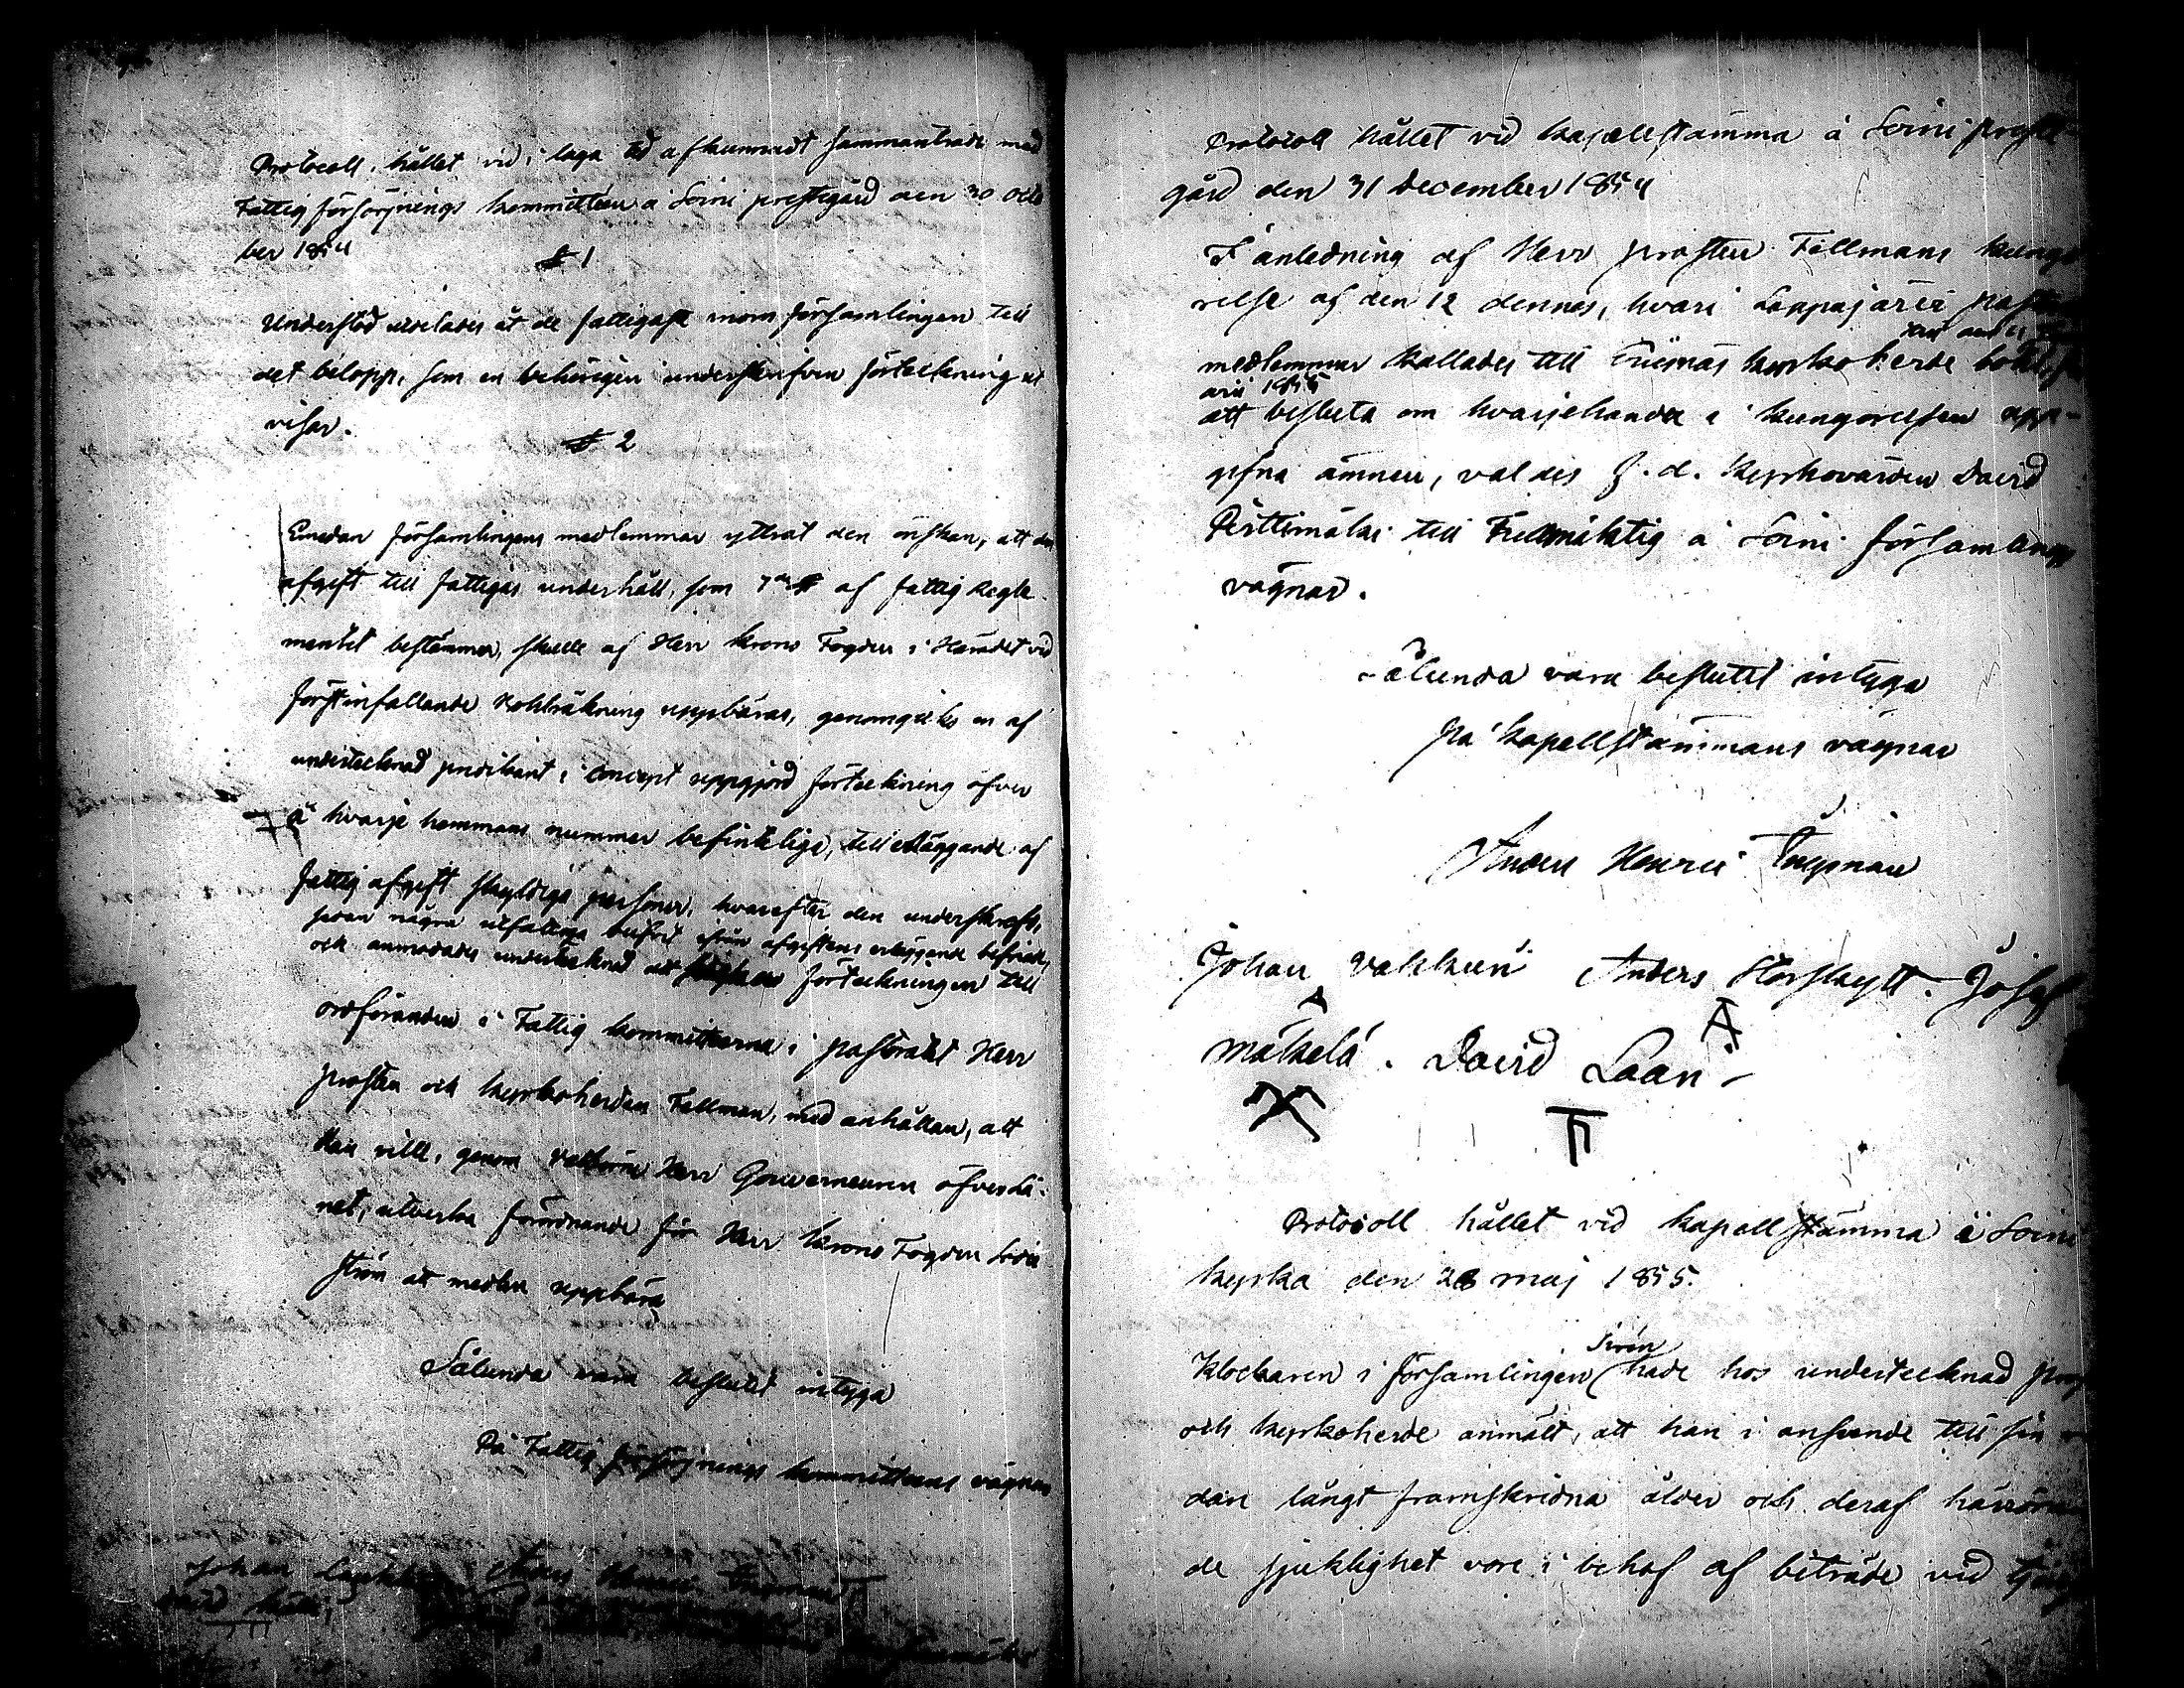 Protocoll, hållet vid, i laga tid afkunnadt sammanträde med
Fattigförsörjnings kommitteen å Soini prestegård den 30 Octo
ber 1854
§ 1
Understöd utdelades åt de fattigaste inom församlingen till
det belopp, som en behörigen underskrifven förteckning ut
visar.
§ 2
Emedan församlingens medlemmar yttrat den önskan, att den
afgift till fattigas underhåll, som 7de § af fattig Regle-
mentet bestämmer, skulle af Herr Krono Fogden i Häradet vid
förstinfallande uppbäras, genomgicks en af
undertecknad predikant i Concept uppgjord förteckning öfver
å hvarje hemmans nummer befintelige, till erläggande af
fattig afgift skyldiga personer, hvarefter den underskrefs,
sedan några utfattiga blifvit ifrån afgiftens erläggande befriade,
och anmodades undertecknad att förteckningen till
ordföranden i Fattig kommitteerna i pastoratet Herr
Prosten och Kyrkoherden Fellman, med anhållan, att
Han ville, genom Herr Gouverneuren öfver Lä-
net, utverka förordnande för Herr Krono Fogden
ström att medlen uppbära
Sålunda vara beslutet intyga
På Fattig försörjnings kommitteens vägnar
Johan Anders Henric
Protocoll hållet vid kapellstämma å Soini prest
gård den 31 December 1854
I anledning af Herr Prosten Fellmans kungö
relse af den 12 dennes, hvari Lappajärvi pastorats
medlemmar kallades till kyrkoherde bohl
arii 1855
att besluta om hvarjehanda i kungörelsen upp-
gifna ämnen, valdes f. d. Kyrkovärden David
Perttimäki till Fullmäktig å Soini församlings
vägnar.
Sålunda vara beslutet intyga
på kapellstämmans vägnar
Anders Henric
Johan Anders Storskytt. Josef
Mäkelä. David Laan-
Protocoll hållet vid kapellstämma i Soini
kyrka den 28 Maj 1855.
Sirén
Klockaren i församlingen hade hos undertecknad Prost
och kyrkoherde anmält, att han i anseende till sin
dan långt framskridna ålder och deraf härrörande
de sjuklighet vore i behof af biträde vid